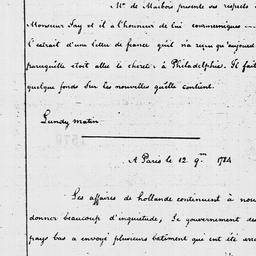 Mr. de Marbois presente ses respects
Monsieur Jay et il a l'honneur de lui communiquer
l'extrait d'une lettre de france qu'il n'a reçu qu'aujourd
parcequ'elle etoit allée le chercher à Philadelphie. Il fait
quelque fonds sur les nouvelles qu'elle contient.
Lundy matin
A Paris le 12 9re 1784
Les affaires de hollande continuent à nous
donner beaucoup d'inquietude, Le gouvernement des
pays bas a envoyé plusieurs batiment qui ont été arre